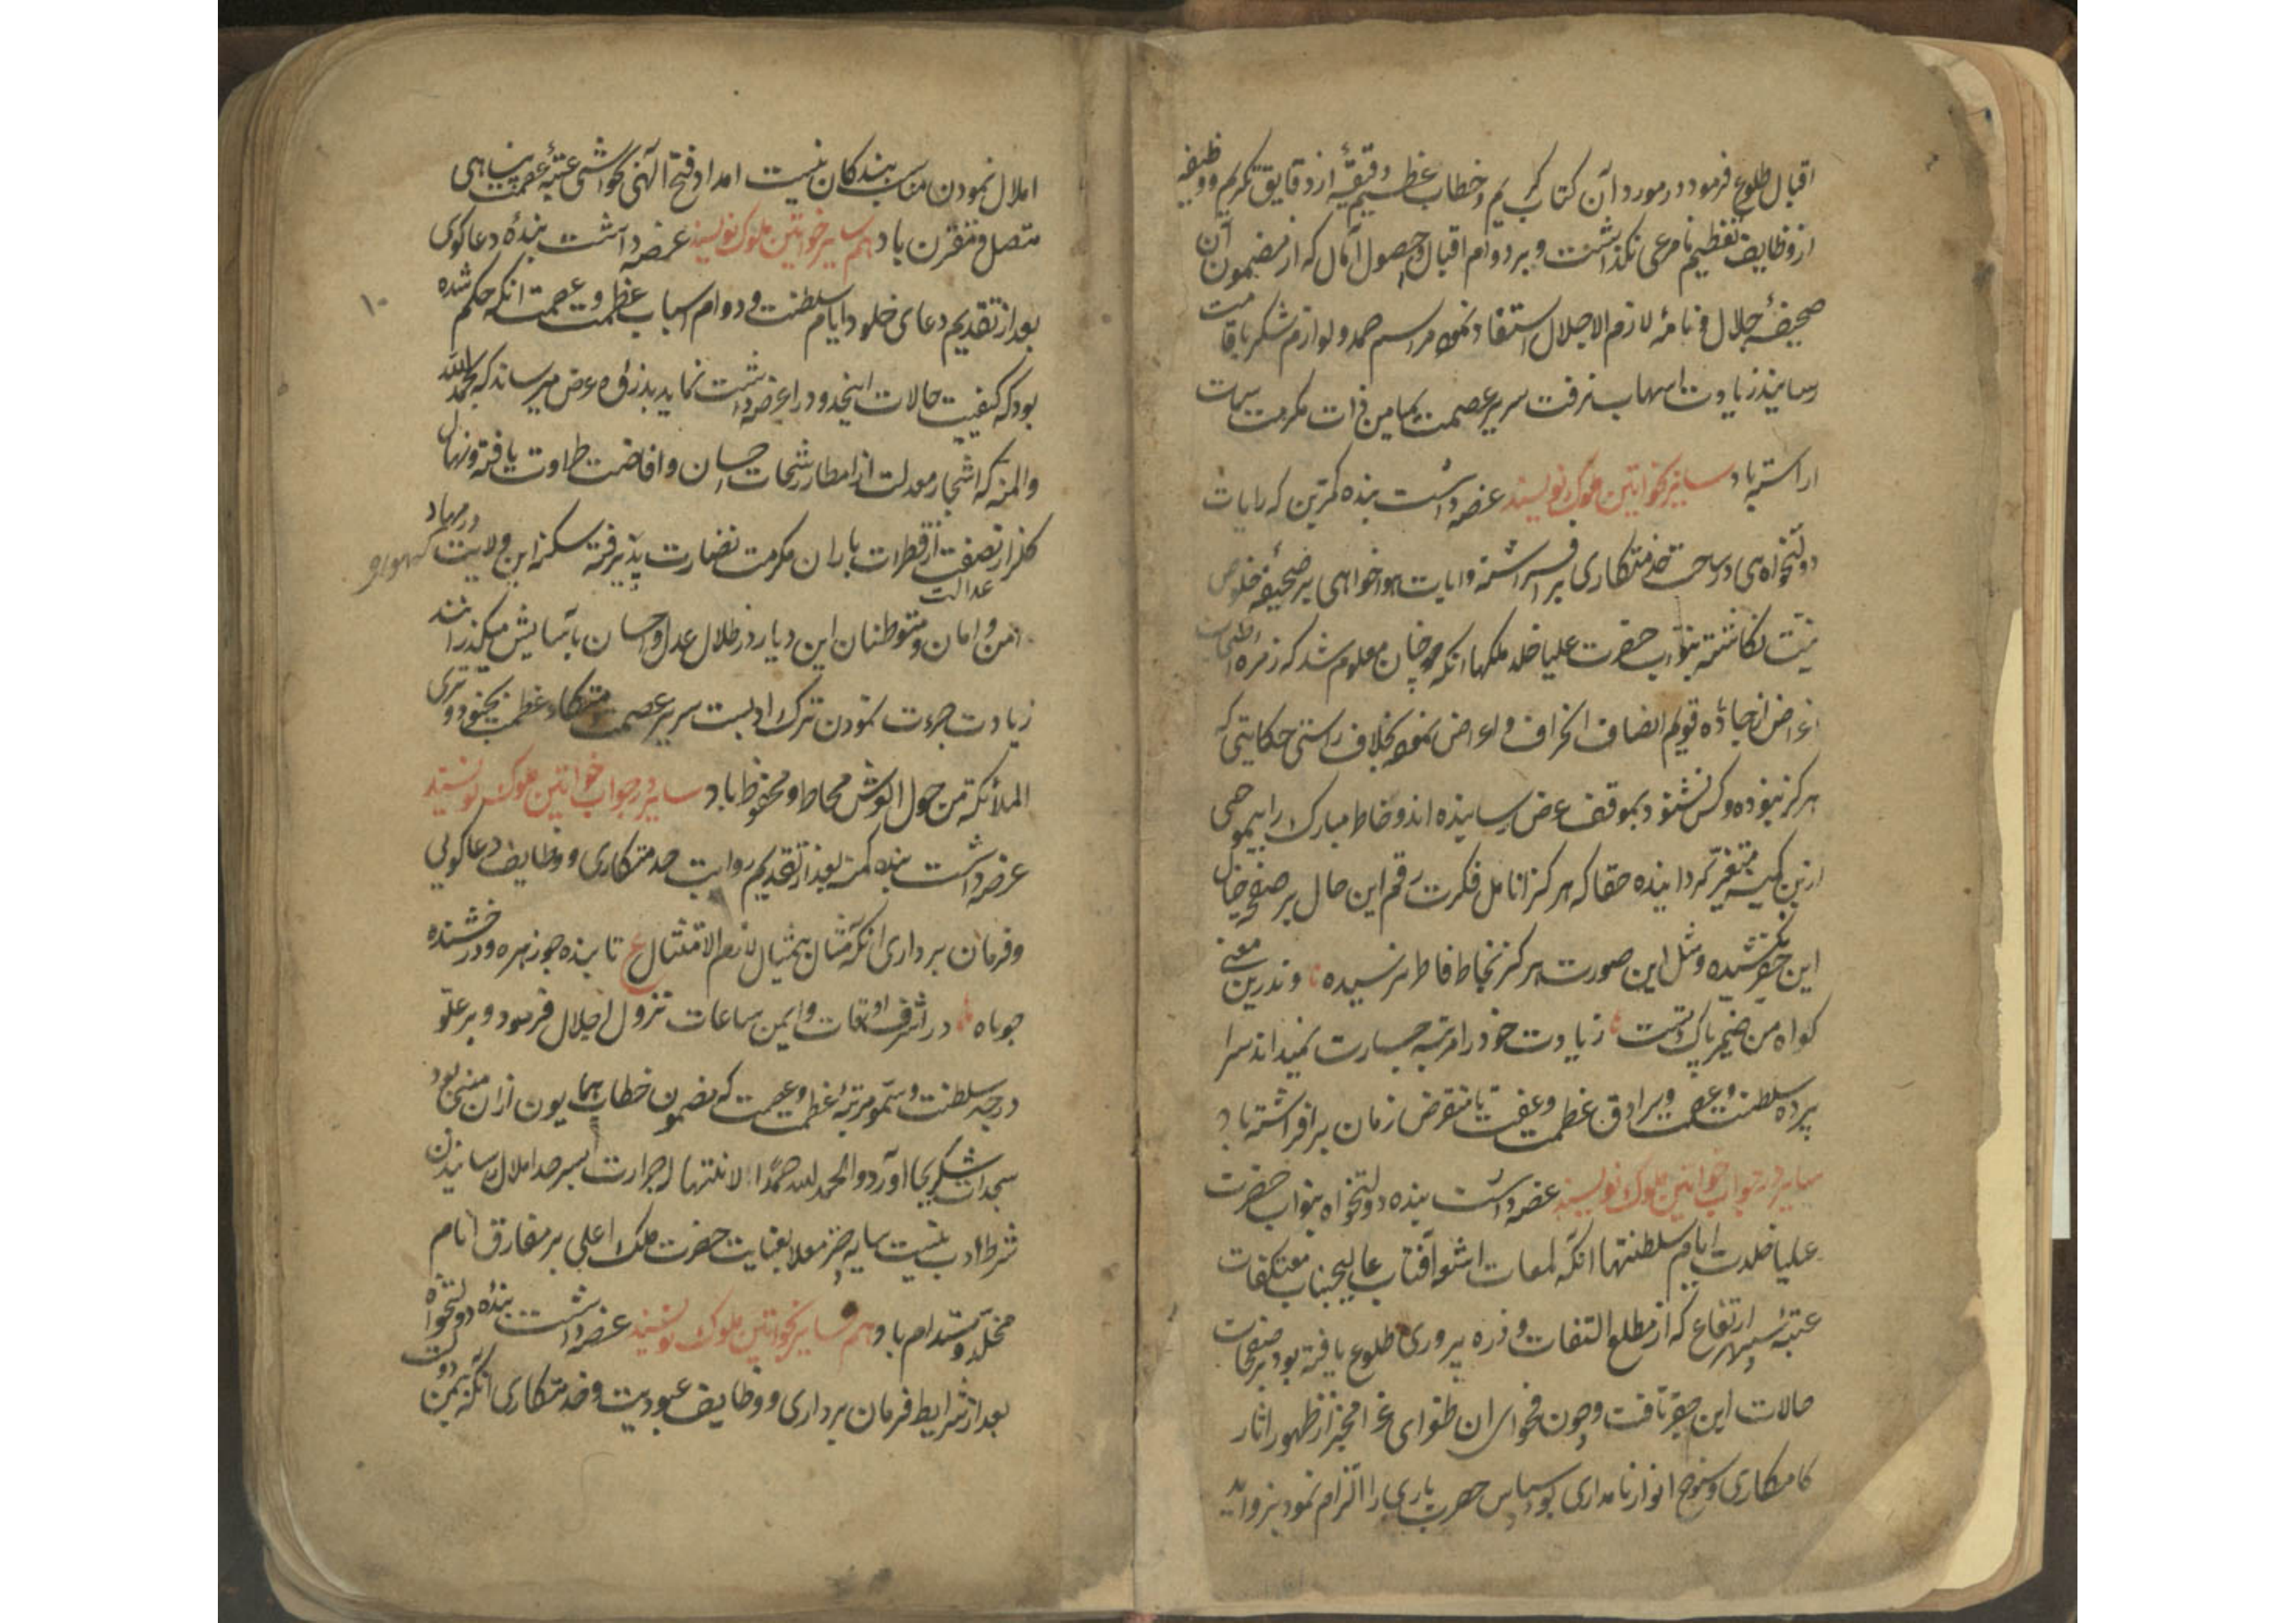 اقبال طلوع فرمود و در مورد آن کتاب کریم و خطاب عظیم دقیقهٔ از دقایق تکریم و وظیفه
از وظایف تعظیم نامرعی نکذاشت و بر دوام اقبال و حصول آمال که از مضمون آن
صحیفهٔ جلال و نامهٔ لازم الاجلال استفاد نموده مراسم حمد و لوازم شکر باقامت
رسانید زیادت اسهاب نرفت سریر عصمت بمیامن ذات مکرمت سمات
اراسته باد سایر بخواتین ملوک نویسند عرضه داشت بنده کمترین که رایات
دولتخواهی در ساحت خدمتکاری برافراشته وایات هواخواهی بر صحیفهٔ خلوص
نیت نکاشته بنواب حضرت علیا خلد ملکها انکه چنان معلوم شد که زمره
اغراض از جادهٔ قویم انصاف انحراف و اعراض نموده بخلاف راستی حکایتی که
هرکز نبوده و کس نشنود بموقف عرض رسانیده اند و خاطر مبارک را بی موجبی
ازین کمینه متغیر کردانیده حقا که هرکز انامل فکرت رقم این حال بر صفحهٔ خیال
این حقیر نکشیده و مثل این صورت هرکز بخاطر فاطر نرسیده و ندرین معنی
کواه من ضمیر پاک تست زیادت خود را مرتبهٔ جسارت نمیداند سرا
پردهٔ سلطنت و عصمت و سرادق عظمت و عفت تا منقرض زمان برافراشته باد
سایر در جواب خواتین ملوک نویسند عرضه داشت بنده دولتخواه بنواب حضرت
علیا خلدت ایام سلطنتها انکه لمعات اشعه آفتاب عالیجناب معتکفات
عتبهٔ سپهر ارتفاع که از مطلع التفات و ذره پروری طلوع یافته بود بر صفحات
حالات این حقیر تافت و چون فحوای ان طغرای غرا مخبر از ظهور اثار
کامکاری و سنوح انوار نامداری بود سپاس حضرت باری را التزام نمود
املال نمودن مناسب بندکان نیست امداد فتح الهی بحواشی عتبهٔ عصمت پناهی
متصل و مقترن باد هم سایر خواتین ملوک نویسند عرضه داشت بندهٔ دعاکوی
بعد از تقدیم دعای خلود ایام سلطنت و دوام اسباب عظمت و عصمت انکه حکم شده
بود که کیفیت حالات اینحدود را عرضه داشت نماید بذروه عرض میرساند که بحمدالله
والمنه که اشجار معدلت از امطار رشحات احسان و افاضت طراوت یافته و نهال
کلزار نصفت از قطرات باران مکرمت نضارت پذیرفته سکنه این ولایت در مهاد
عدالت
امن و امان و متوطنان این دیار در ظلال عدل و احسان بآسایش میکذرانند
زیادت جرءت نمودن ترک ادبست سریر عصمت و متکاء عظمت بجنود و تری
الملائکة من حول العرش محاط و محفوظ باد سایر در جواب خواتین ملوک نویسند
عرضه داشت بنده کمینه بعد از تقدیم روایت خدمتکاری و وظایف دعاکویی
و فرمان برداری انکه مثال بیمثال لازم الامتثال ع تابنده چو زهره و درخشنده
چو ماه در اشرف اوقات و ایمن ساعات نزول اجلال فرمود و بر علو
درجه سلطنت و سمو مرتبهٔ عظمت و عصمت که مضمون خطاب همایون ازان منبی بود
سجدات شکر بجا اورد و الحمد لله حمدا لا انتها له جرارت بسرحد املال رسانیدن
شرط ادب نیست سایه معلا بعنایت حضرت ملک اعلی بر مفارق انام
مخلد و مستدام باد و هم سایر بخواتین ملوک نویسند عرضه داشت بندهٔ دولتخواه
بعد از شرایط فرمان برداری و وظایف عبودیت و خدمتکاری انکه بیمن دولت